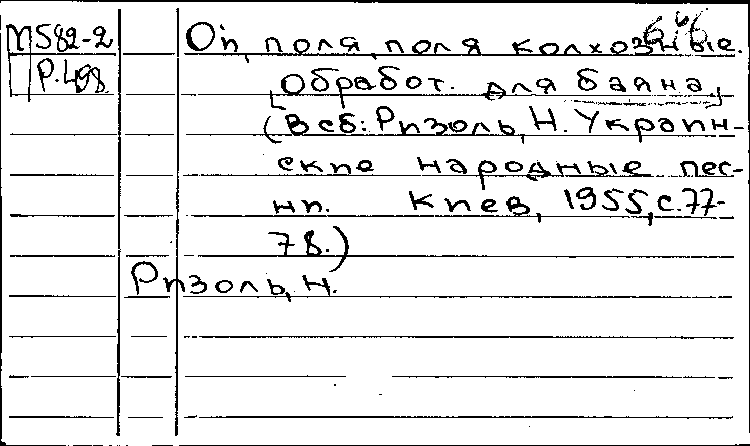 М582-2
Р.498
Ой, поля, поля колхозные.
[Обработ. для баяна]
(В сб: Ризоль, Н. Украин-
ские народные пес-
ни. Киев, 1955, с.77-
78.)
Ризоль, Н.